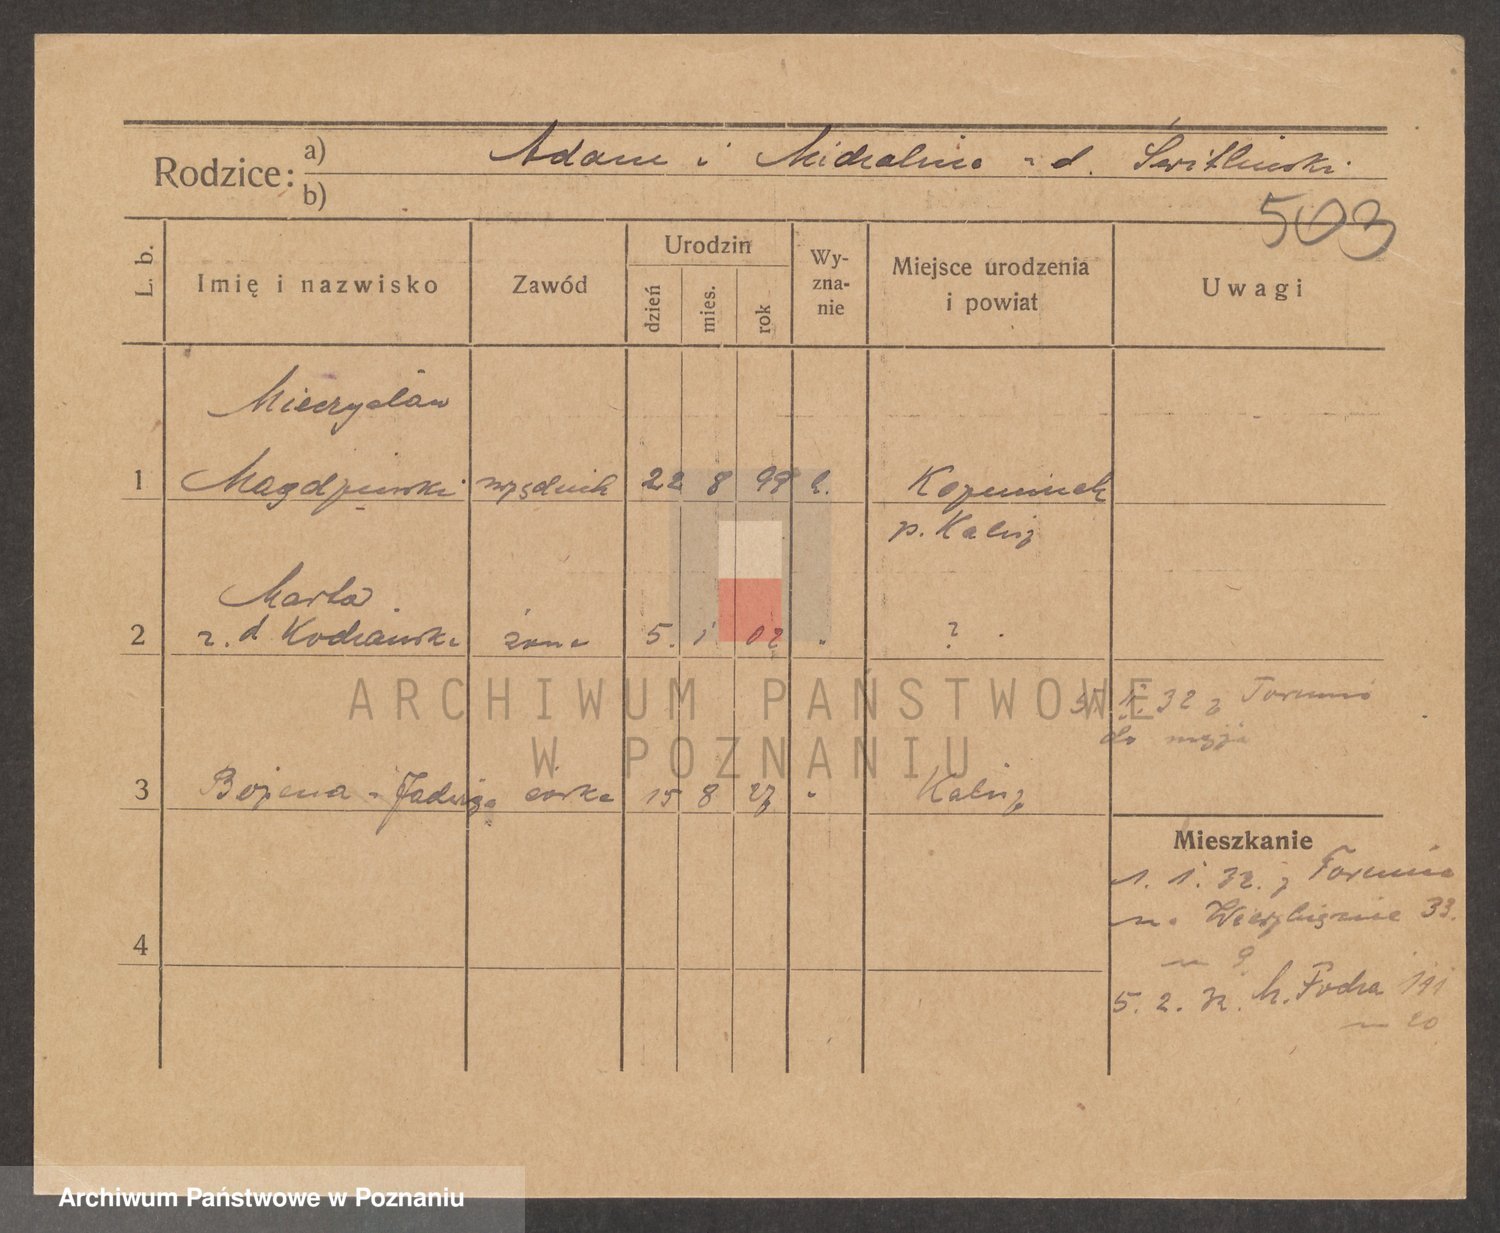 Rodzice:
a) Adam i Michalina z d. Świtliński
b)
503
L. b.
Imię i nazwisko
Zawód
Urodzin
dzień
mies.
rok
Wy-
zna-
nie
Miejsce urodzenia
i powiat
Uwagi
Mieczysław
1 Magdziński urzędnik 22 8 99 k. Kozminek
p. Kalisz
Marta
2 z. d Kochańska żona 5. 1 02 " ? .
1. 32 z Torunia
do męża
3 Bożena - Jadwiga córka 15 8 27 " Kalisz
Mieszkanie
1. 1. 32. z Torunia
Wierzbięcice 33.
m 9
4
5. 2. 32. M. Focha 141
m 20
ARCHIWUM PAŃSTWOWE
W POZNANIU
Archiwum Państwowe w Poznaniu